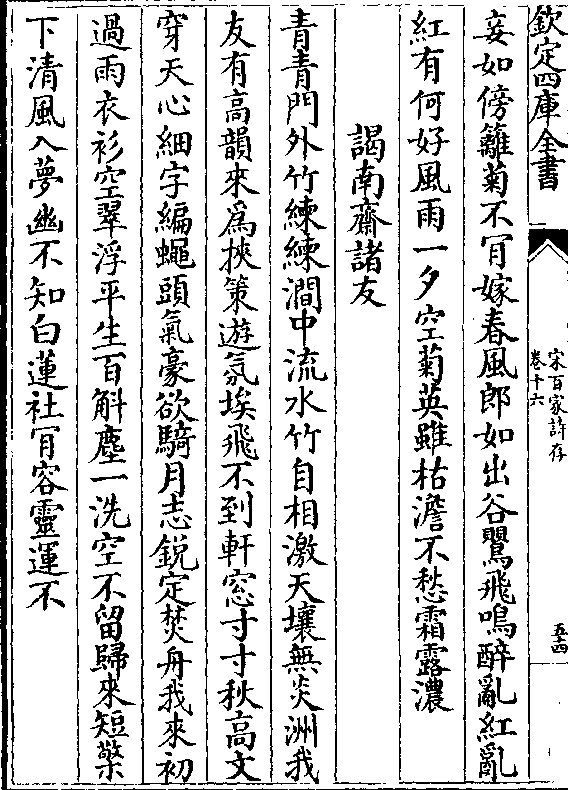 欽定四庫全書
宋百家詩存
卷十六
五十四
妾如傍籬菊不肎嫁春風郎如出谷鸎飛鳴醉亂紅亂
紅有何好風雨一夕空菊英雖枯澹不愁霜露濃
謁南齋諸友
青青門外竹練練澗中流水竹自相激天壤無炎洲我
友有高韻來爲挾策遊氛埃飛不到軒窓寸寸秋高文
穿天心細字編蠅頭氣豪欲騎月志鋭定焚舟我來初
過雨衣衫空翠浮平生百斛塵一洗空不留歸來短檠
下清風入夢幽不知白蓮社肎容靈運不